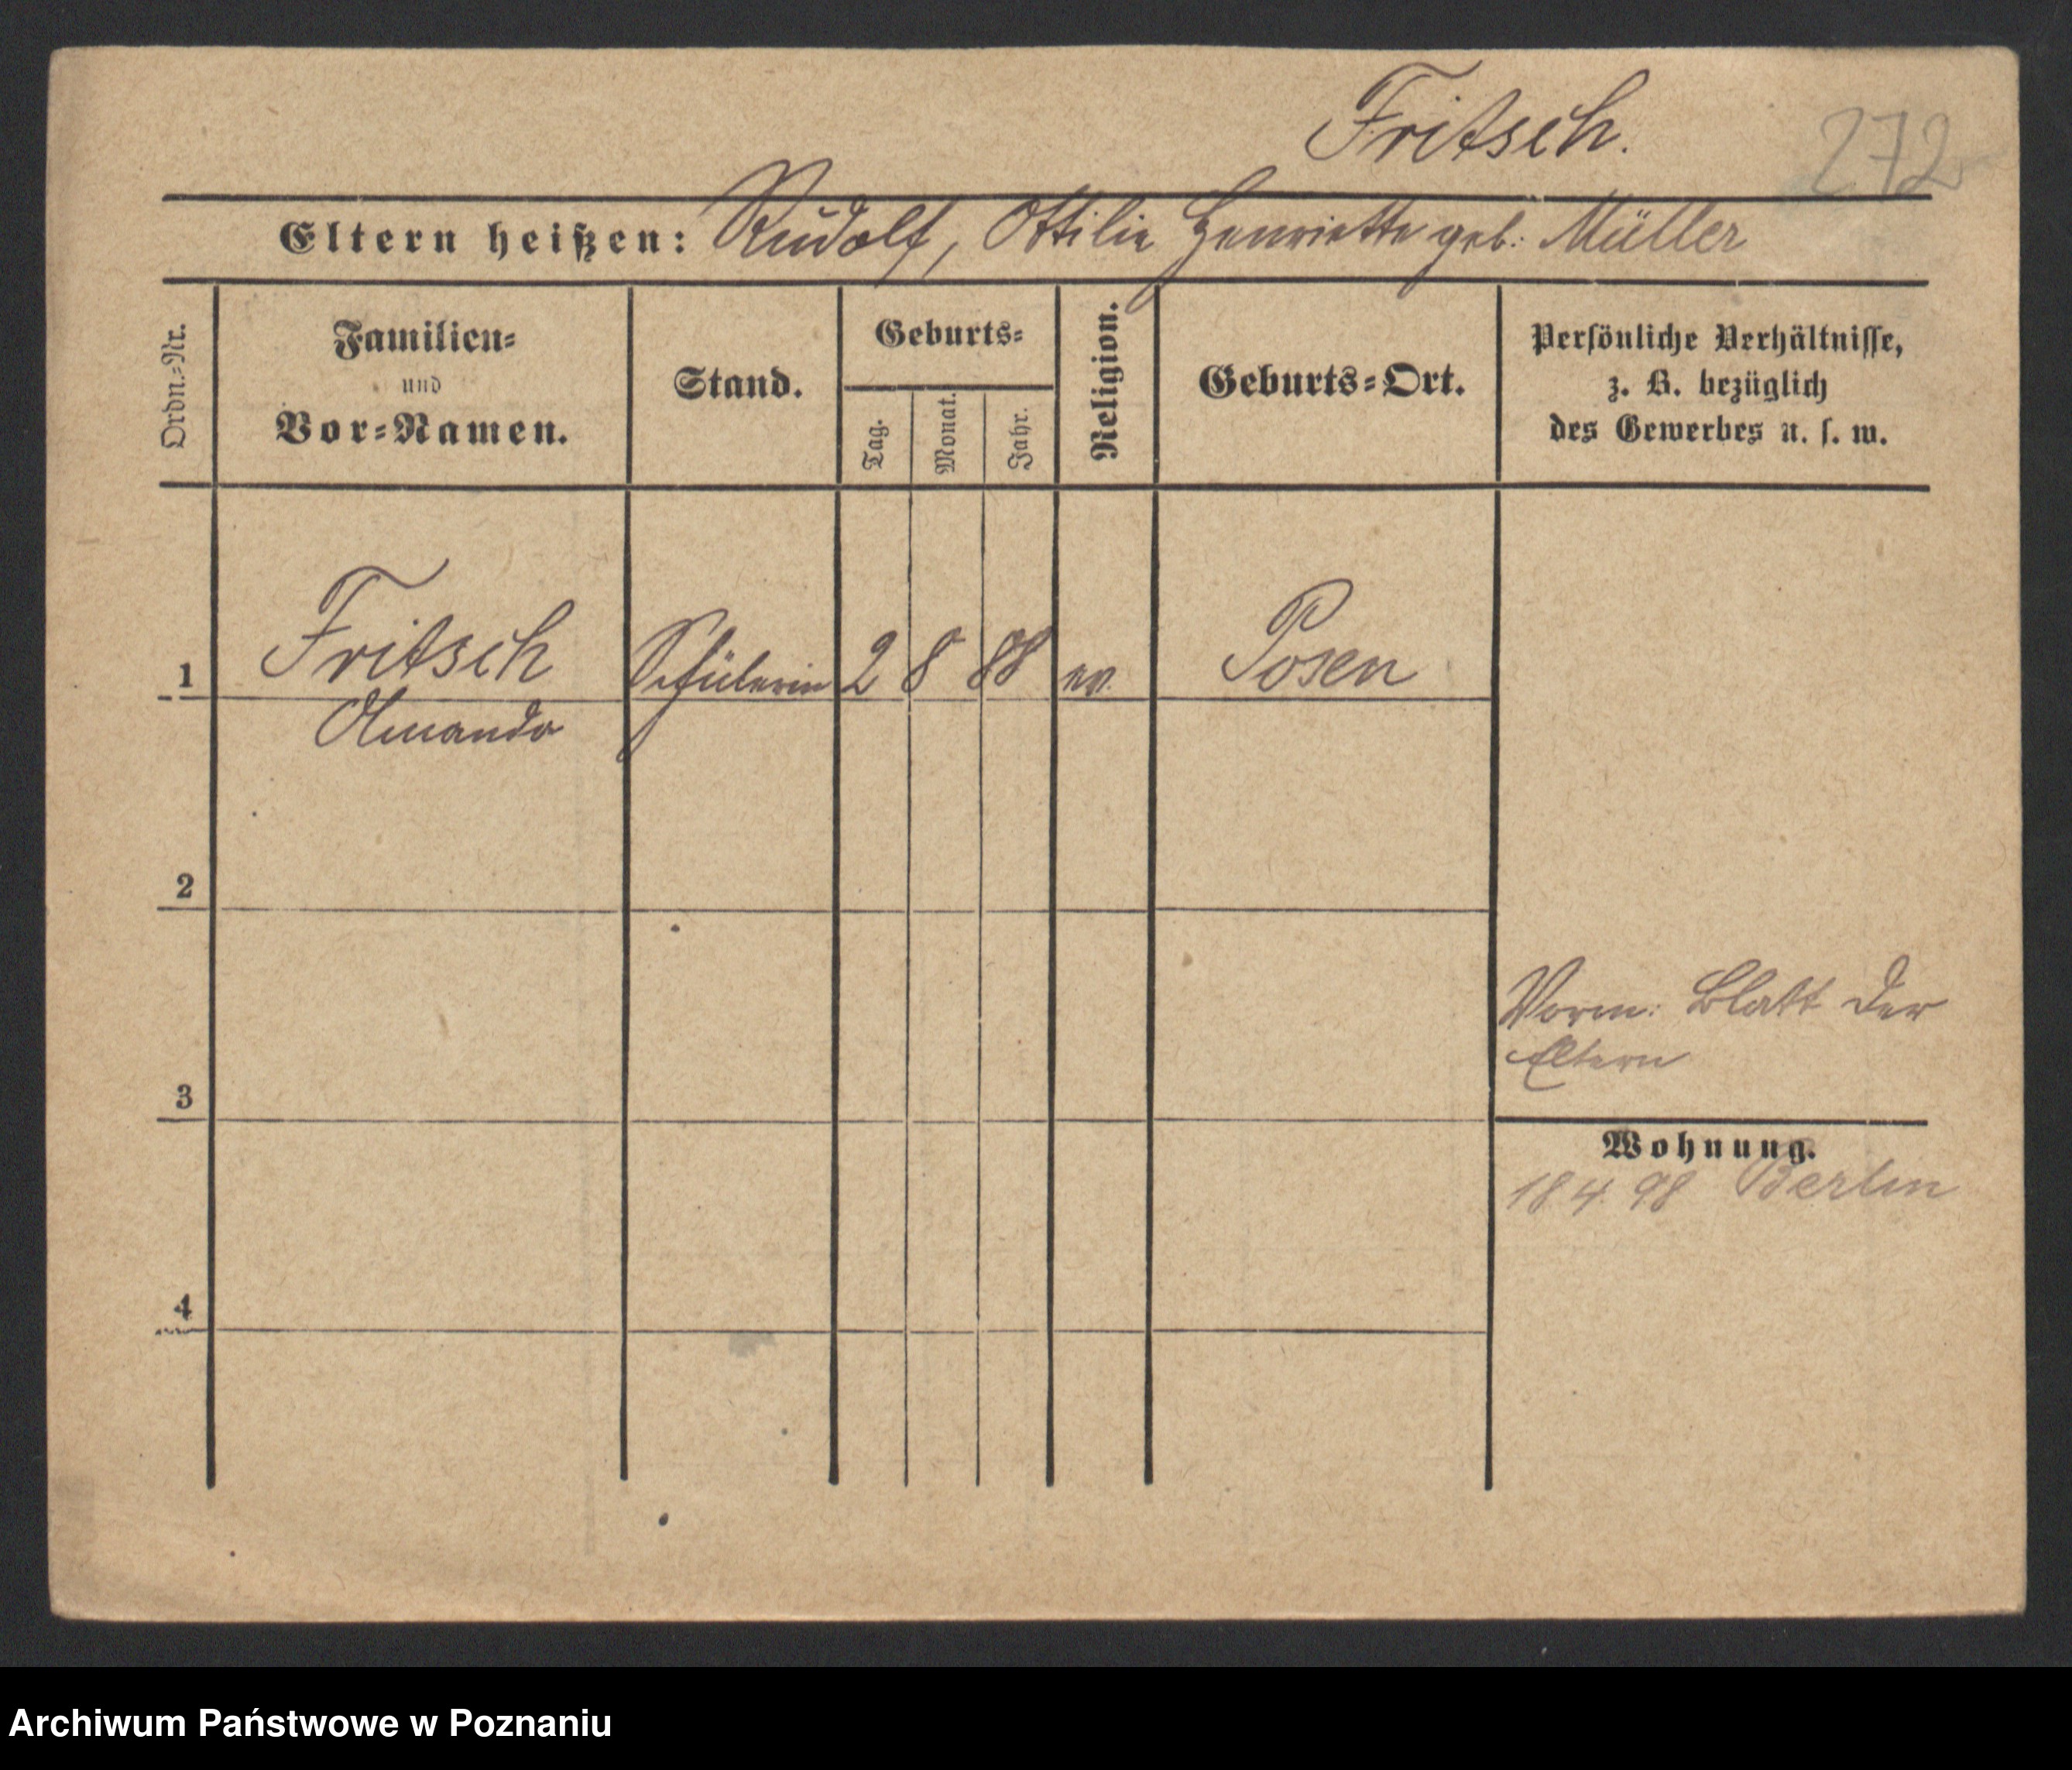 Fritsch.
272
Eltern heißen: Rudolf, Ottilie Henriette geb: Müller
Ordn.-Nr.
Familien-
und
Vor-Namen.
Stand.
Geburts-
Tag.
Monat.
Jahr.
Religion.
Geburts-Ort.
Persönliche Verhältnisse,
z. B. bezüglich
des Gewerbes u. s. w.
1 Fritsch Schülerin 2 8 88 ev. Posen
Amanda
2
Vorm: Blatt der
Eltern
3
Wohnung.
18 4. 98 Berlin
4
Archiwum Państwowe w Poznaniu